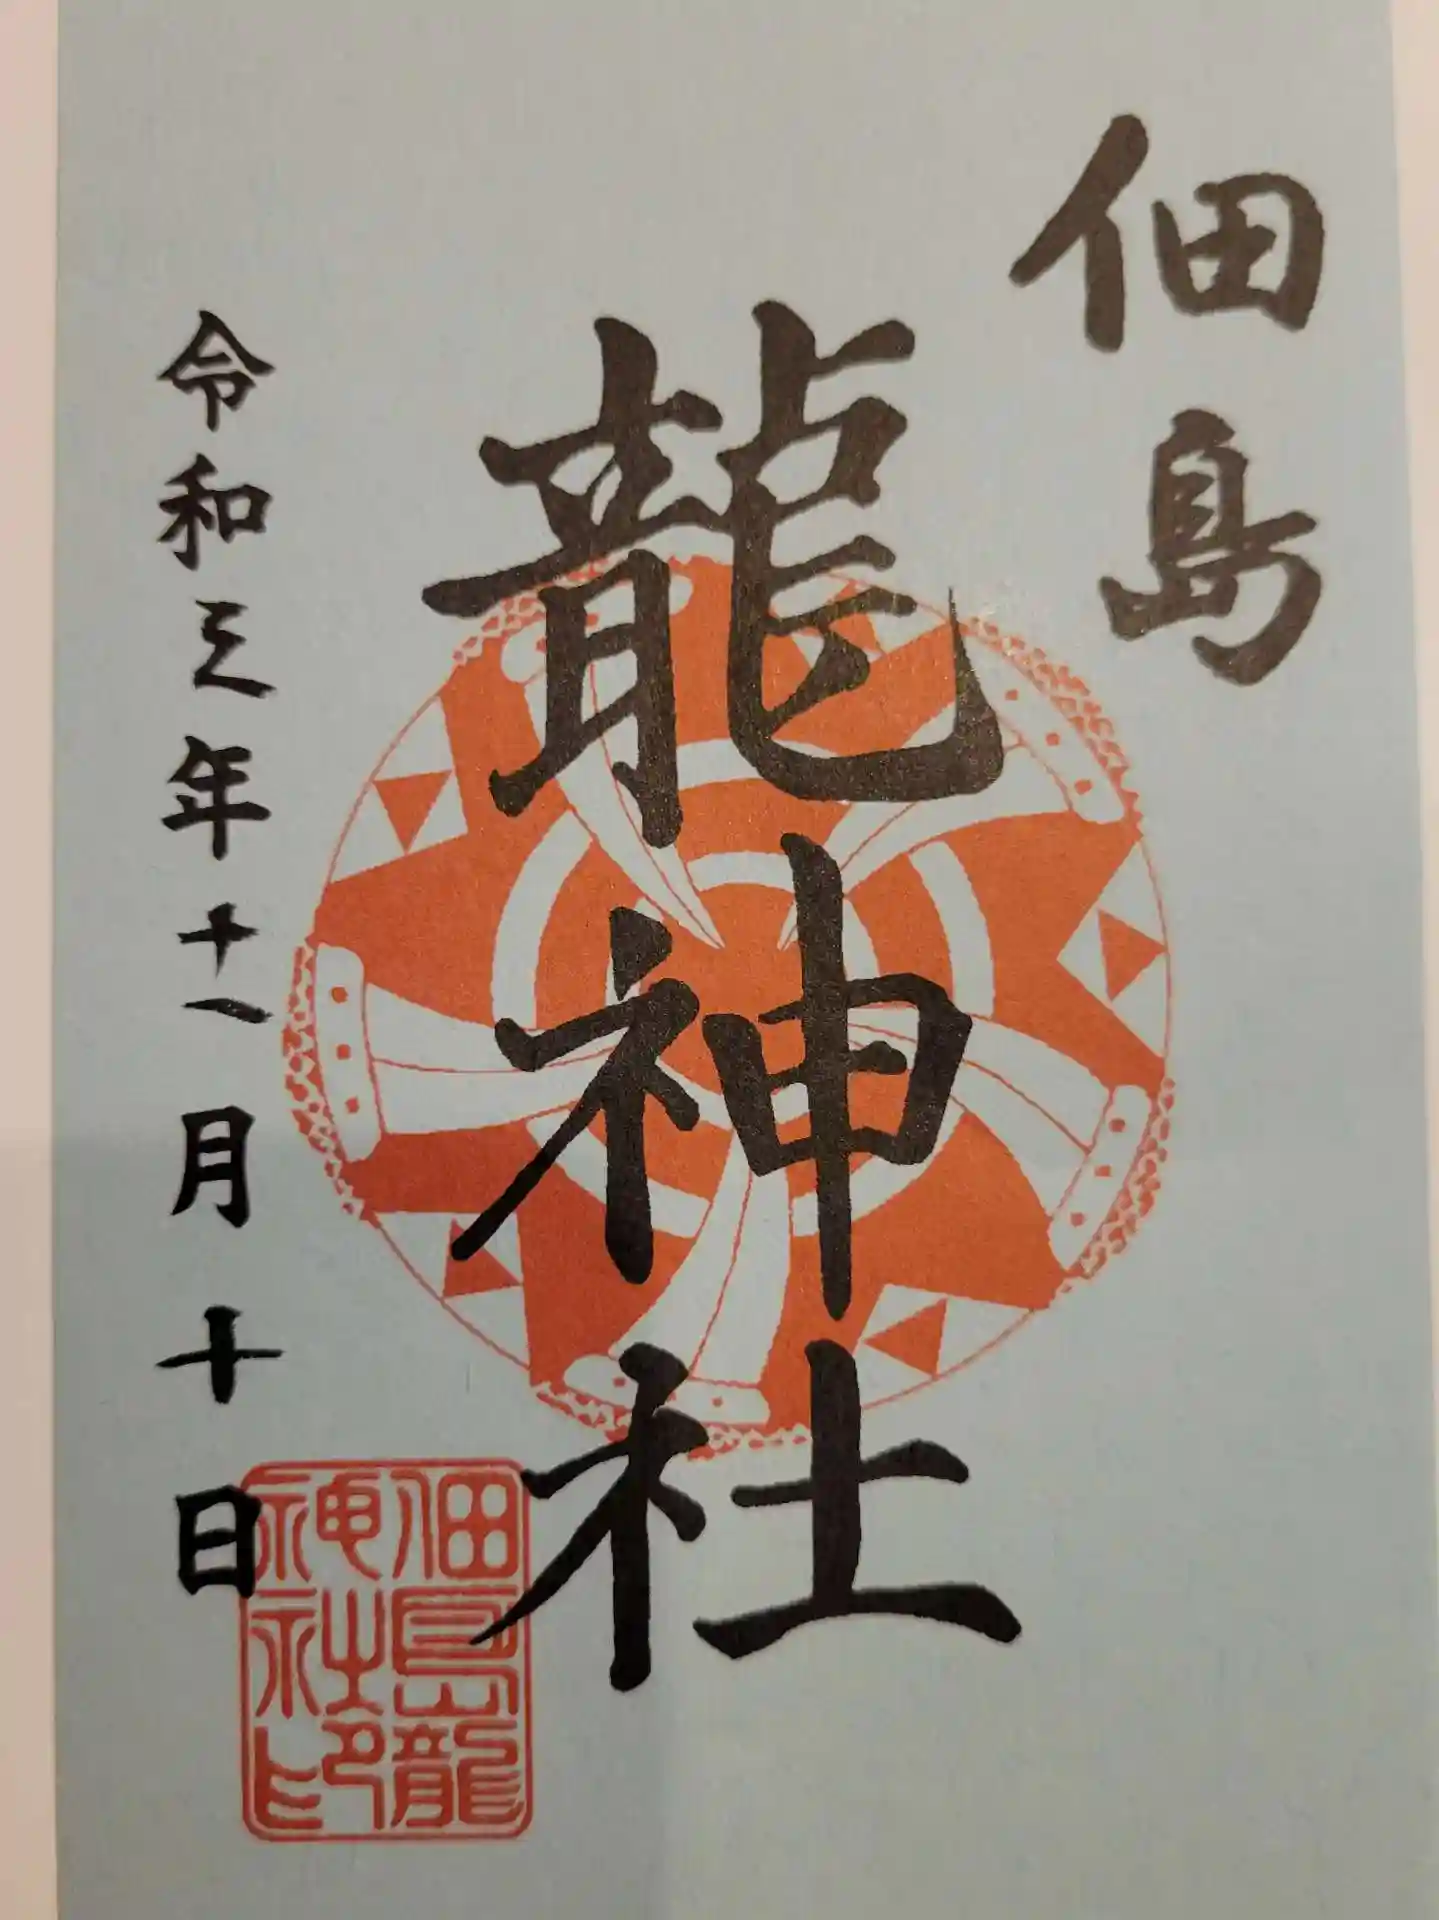 佃島
龍神社
令和三年十一月十日
佃島龍
神社印